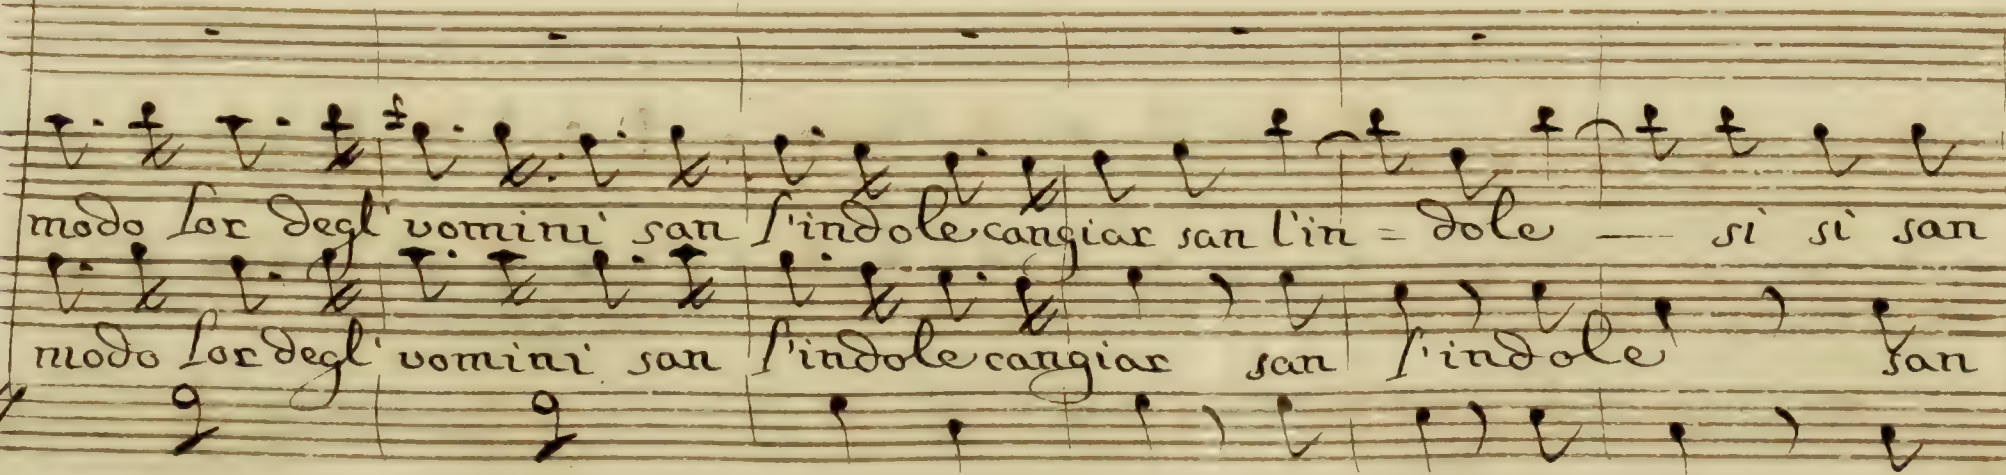 modo lor degl' uomini san l'indole cangiar san l'in = dole — si si san
modo lor degl' uomini san l'indole cangiar san l'indole san